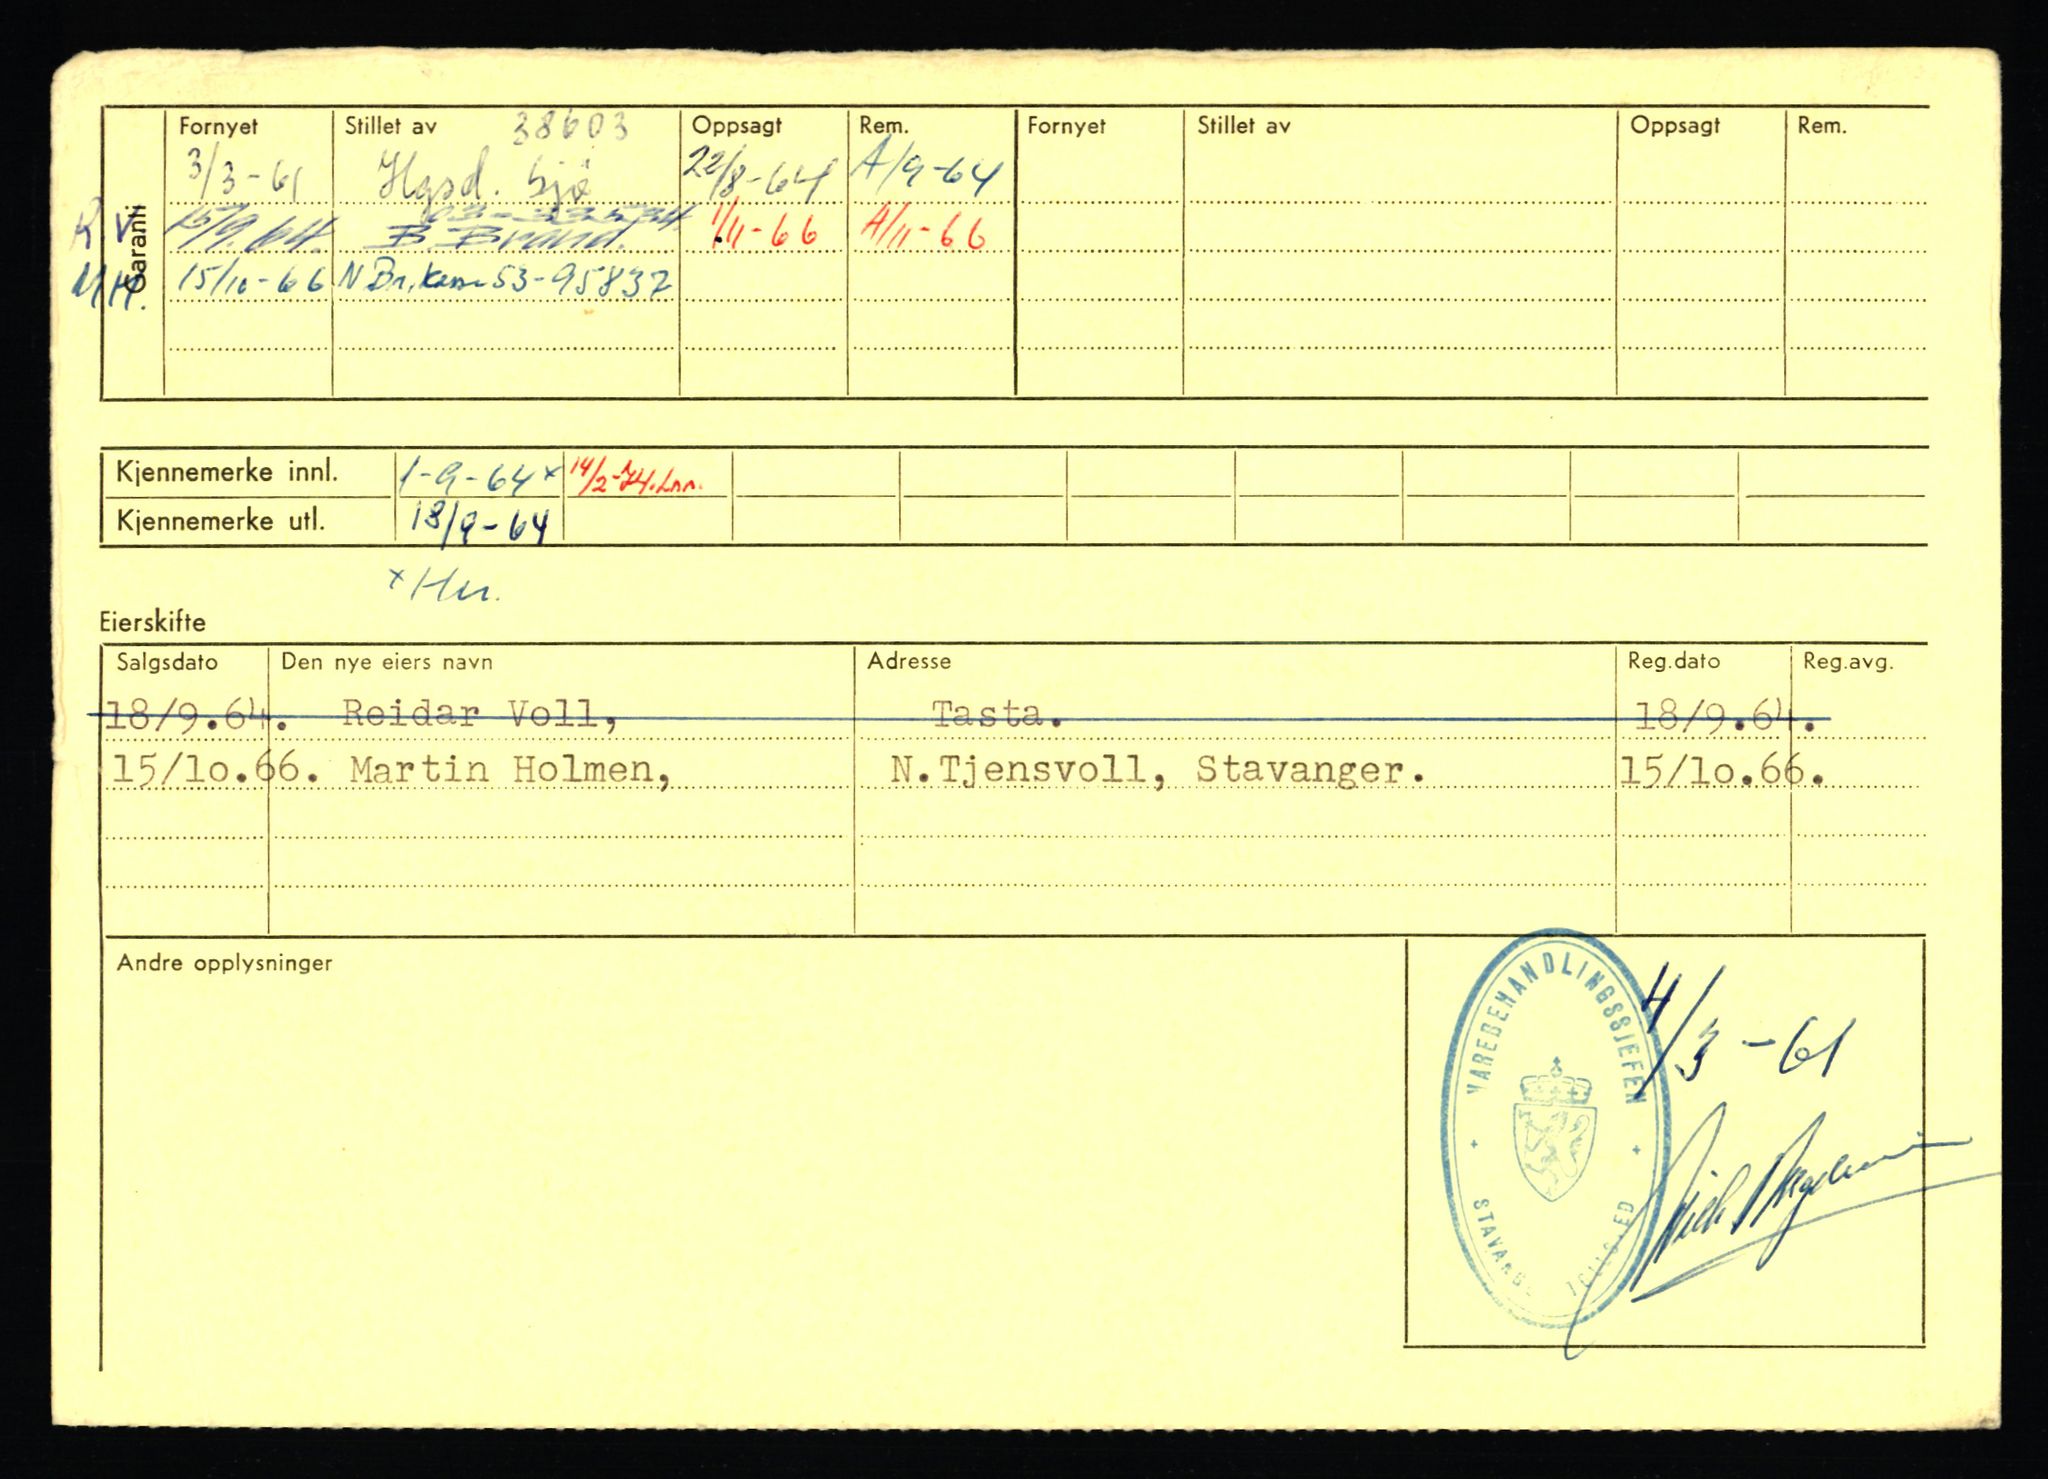 Garanti
Fornyet Stillet av 38603 Oppsagt Rem. Fornyet Stillet av Oppsagt Rem.
3/3-61 Hgsd. Sjø 22/8-64 A/9-64
R V 15/9.64. B. Brand. 1/11-66 A/11-66
M H. 15/10-66 N Br.kasse 53-95837
Kjennemerke innl. 1-9-64 x 14/2-74.
Kjennemerke utl. 18/9-64
x
Eierskifte
Salgsdato Den nye eiers navn Adresse Reg.dato Reg.avg.
18/9.64. Reidar Voll, Tasta. 18/9.64.
15/1o.66. Martin Holmen, N.Tjensvoll, Stavanger. 15/1o.66.
Andre opplysninger
VAREBEHANDLINGSSJEFEN
4/3-61